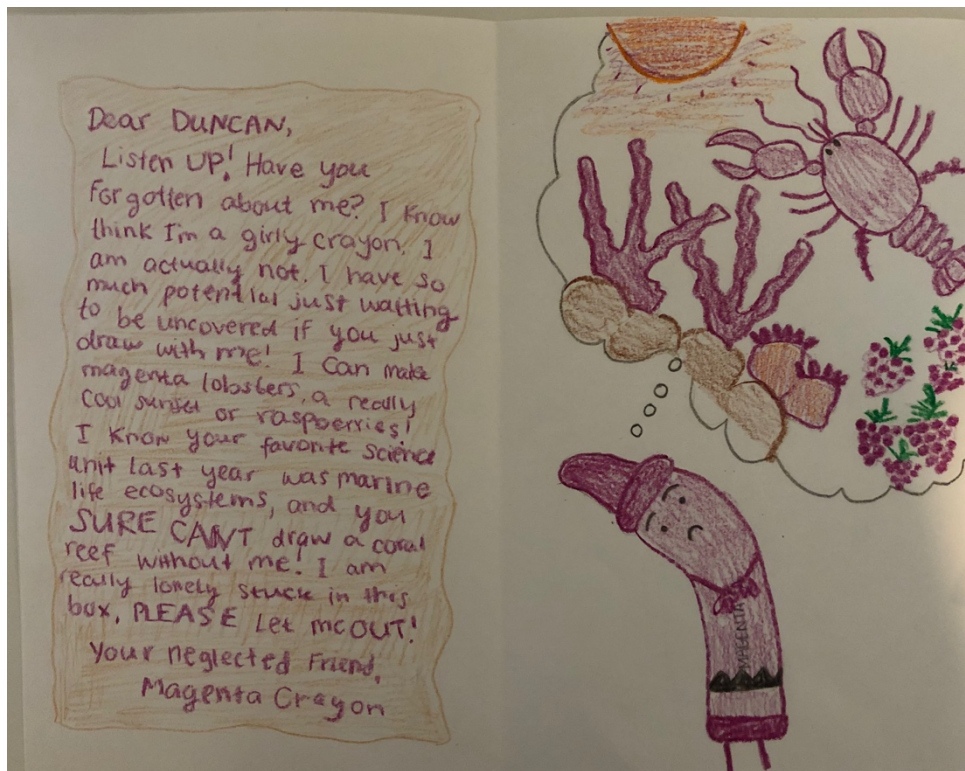 Dear DUNCAN,
Listen UP! Have you
forgotten about me? I know
think I'm a girly crayon. I
am actually not. I have so
much potential just waiting
to be uncovered if you just
draw with me! I can make
magenta lobsters, a really
cool sunset or raspberries!
I know your favorite science
unit last year was marine
life ecosystems, and you
SURE CAN'T draw a coral
reef without me! I am
really lonely stuck in this
box, PLEASE Let me OUT!
Your neglected Friend,
Magenta Crayon
MAGENTA